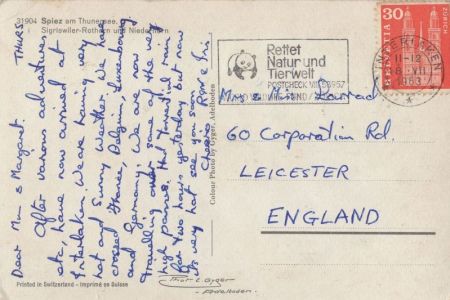 31904 Spiez am Thunersee.
Sigriswiler-Rothorn und Niederhorn
THURS
Dear Mum & Margaret.
After various adventures
etc, have now arrived at
Interlaken. We are having very
hot and sunny weather. We have
crossed France, Belgium, Luxembourg
and Germany. We are now
travelling over some of the very
high passes. Had torrential rain
for two hours yesterday but now
its very hot see you soon
Cheerio Ron & Iris
Printed in Switzerland - Imprimé en Suisse
Colour Photo by Gyger, Adelboden
Rettet
Natur und
Tierwelt
POSTCHECK VIII 58957
WORLD WILDLIFE FUND
INTERLAKEN
11-12
8. VII
1963
30
HELVETIA
ZÜRICH
Mrs & Miss
60 Corporation Rd.
LEICESTER
ENGLAND
Phot E. Gyger
Adelboden